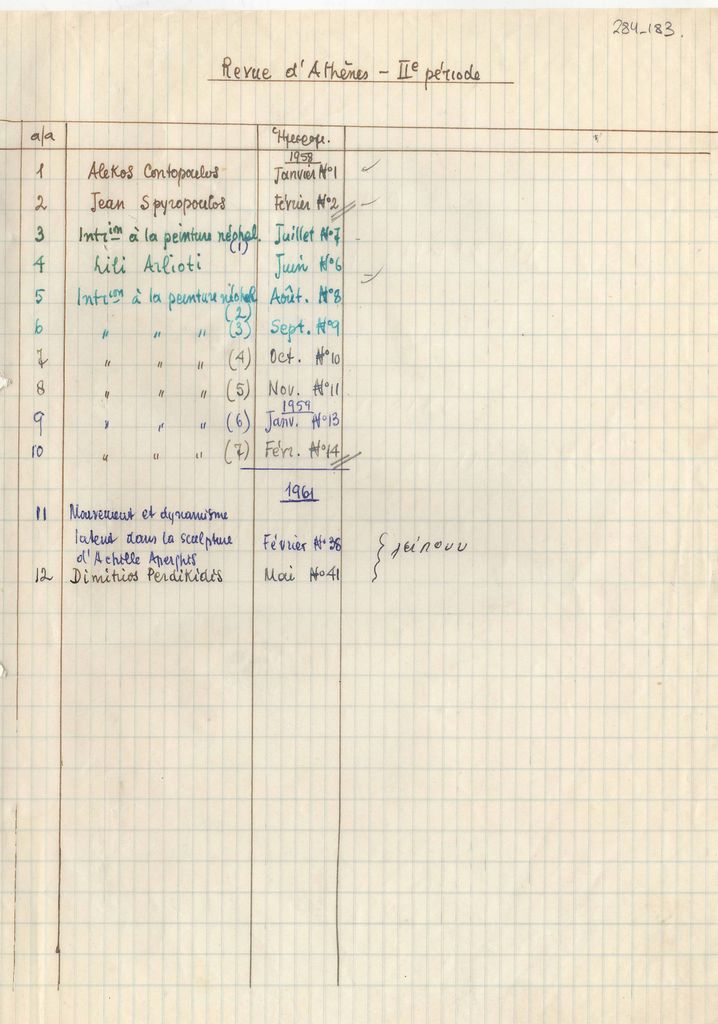 284-183.
Revue d'Athènes - IIe période
α/α Ημερομ.
1958
1 Alekos Contopoulos Janvier No1
2 Jean Spyropoulos Février No2
3 Intrion à la peinture néohel. Juillet No7
(1)
4 Lili Arlioti Juin No6
5 Intrion à la peinture néohel Août. No8
(2)
6 " " " (3) Sept. No9
7 " " " (4) Oct. No10
8 " " " (5) Nov. No11
1959
9 " " " (6) Janv. No13
10 " " " (7) Févr. No14
1961
11 Mouvement et dynamisme
latent dans la sculpture Février No38 λείπουν
d'Achille Aperghis
12 Dimitrios Perdikidis Mai No41